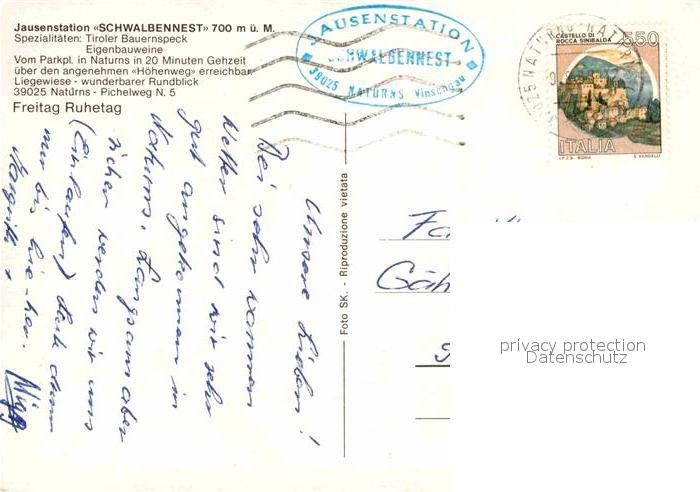 Jausenstation «SCHWALBENNEST» 700 m ü. M.
Spezialitäten: Tiroler Bauernspeck
Eigenbauweine
Vom Parkpl. in Naturns in 20 Minuten Gehzeit
über den angenehmen «Höhenweg» erreichbar
Liegewiese - wunderbarer Rundblick
39025 Natúrns - Pichelweg N. 5
Freitag Ruhetag
JAUSENSTATION
SCHWALBENNEST
39025 NATURNS Vinschgau
CASTELLO DI
ROCCA SINIBALDA
550
ITALIA
I.P.Z.S. ROMA
E. VANGELLI
Foto SK. - Riproduzione vietata
Unsere Lieben!
Bei sehr warmen
Wetter sind wir sehr
gut angekommen in
Naturns. Langsam aber
sicher werden wir uns
nur bis
Gäh
privacy protection
Datenschutz